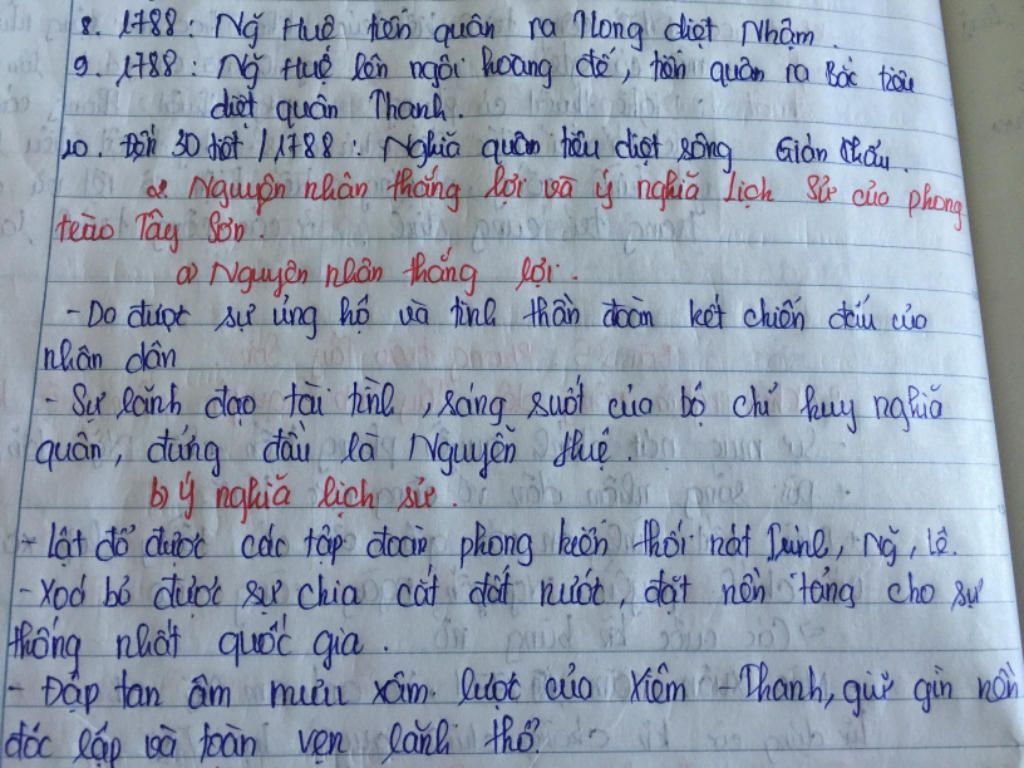 8. 1788: Ng̃ Huệ tiến quân ra TLong diệt Nhậm.
9. 1788: Ng̃ Huệ lên ngôi hoàng đế, tiến quân ra Bắc tiêu
diệt quân Thanh.
10. Đến 30 tết /1788: Nghĩa quân tiêu diệt sông Gián Khẩu.
2. Nguyên nhân thắng lợi và ý nghĩa Lịch Sử của phong
trào Tây Sơn.
a) Nguyên nhân thắng lợi.
- Do được sự ủng hộ và tinh thần đoàn kết chiến đấu của
nhân dân
- Sự lãnh đạo tài tình, sáng suốt của bộ chỉ huy nghĩa
quân, đứng đầu là Nguyễn Huệ.
b) Ý nghĩa lịch sử.
- Lật đổ được các tập đoàn phong kiến thối nát Trịnh, Ng̃, Lê.
- Xoá bỏ được sự chia cắt đất nước, đặt nền tảng cho sự
thống nhất quốc gia.
- Đập tan âm mưu xâm lược của Xiêm - Thanh, giữ gìn nền
độc lập và toàn vẹn lãnh thổ.